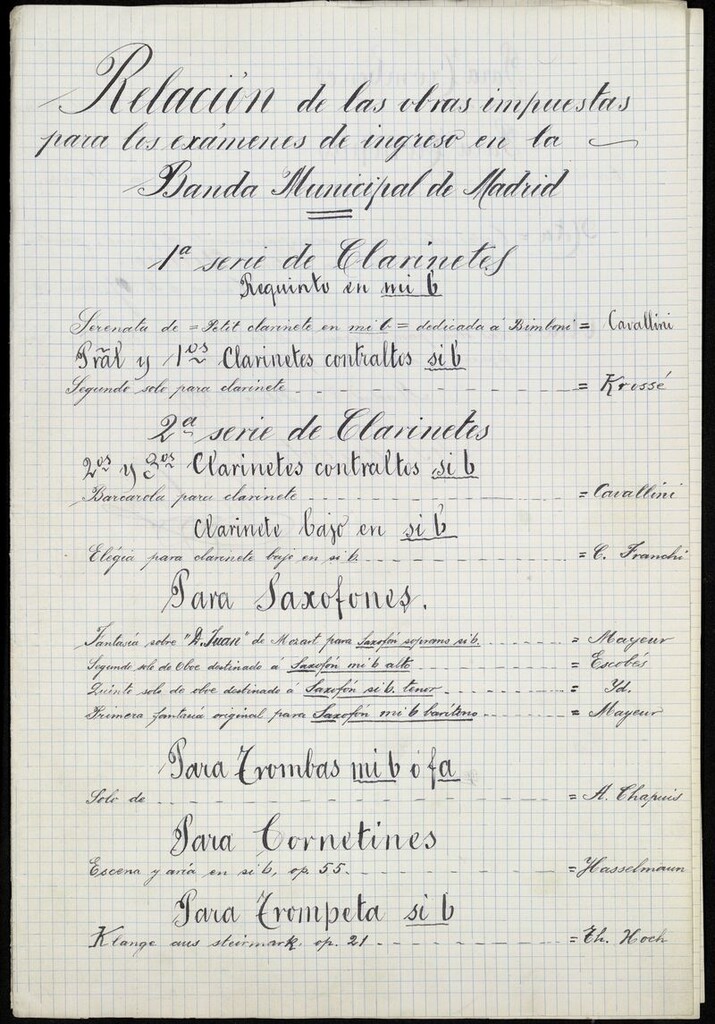 Relación de las obras impuestas
para los exámenes de ingreso en la
Banda Municipal de Madrid
1ª serie de Clarinetes
Requinto en mi b
Serenata de = Petit clarinete en mi b = dedicada á Bimboni = Cavallini
Pral y 1os Clarinetes contraltos si b
Segundo solo para clarinete = Krossé
2ª serie de Clarinetes
2os y 3os Clarinetes contraltos si b
Barcarola para clarinete = Cavallini
Clarinete bajo en si b
Elégia para clarinete bajo en si b. = C. Franchi
Para Saxofones.
Fantasia sobre "D. Juan" de Mozart para Saxofón soprano si b. = Mayeur
Segundo solo de Oboe destinado á Saxofón mi b alto = Escobés
Quinto solo de oboe destinado á Saxofón si b. tenor = Yd.
Primera fantasia original para Saxofón mi b barítono = Mayeur
Para Trombas mi b ó fa
Solo de = A. Chapuis
Para Cornetines
Escena y aria en si b, op. 55. = Hasselmann
Para Trompeta si b
Klange aus steirmark. op. 21 = Th. Hoch